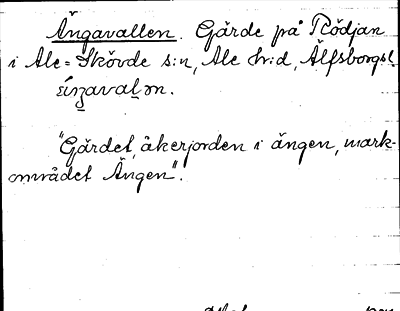 Ängavallen. Gärde på Rödjan
i Ale-Skövde s:n, Ale h:d, Älfsborgs l.
"Gärdet, åkerjorden i ängen, mark-
området Ängen".